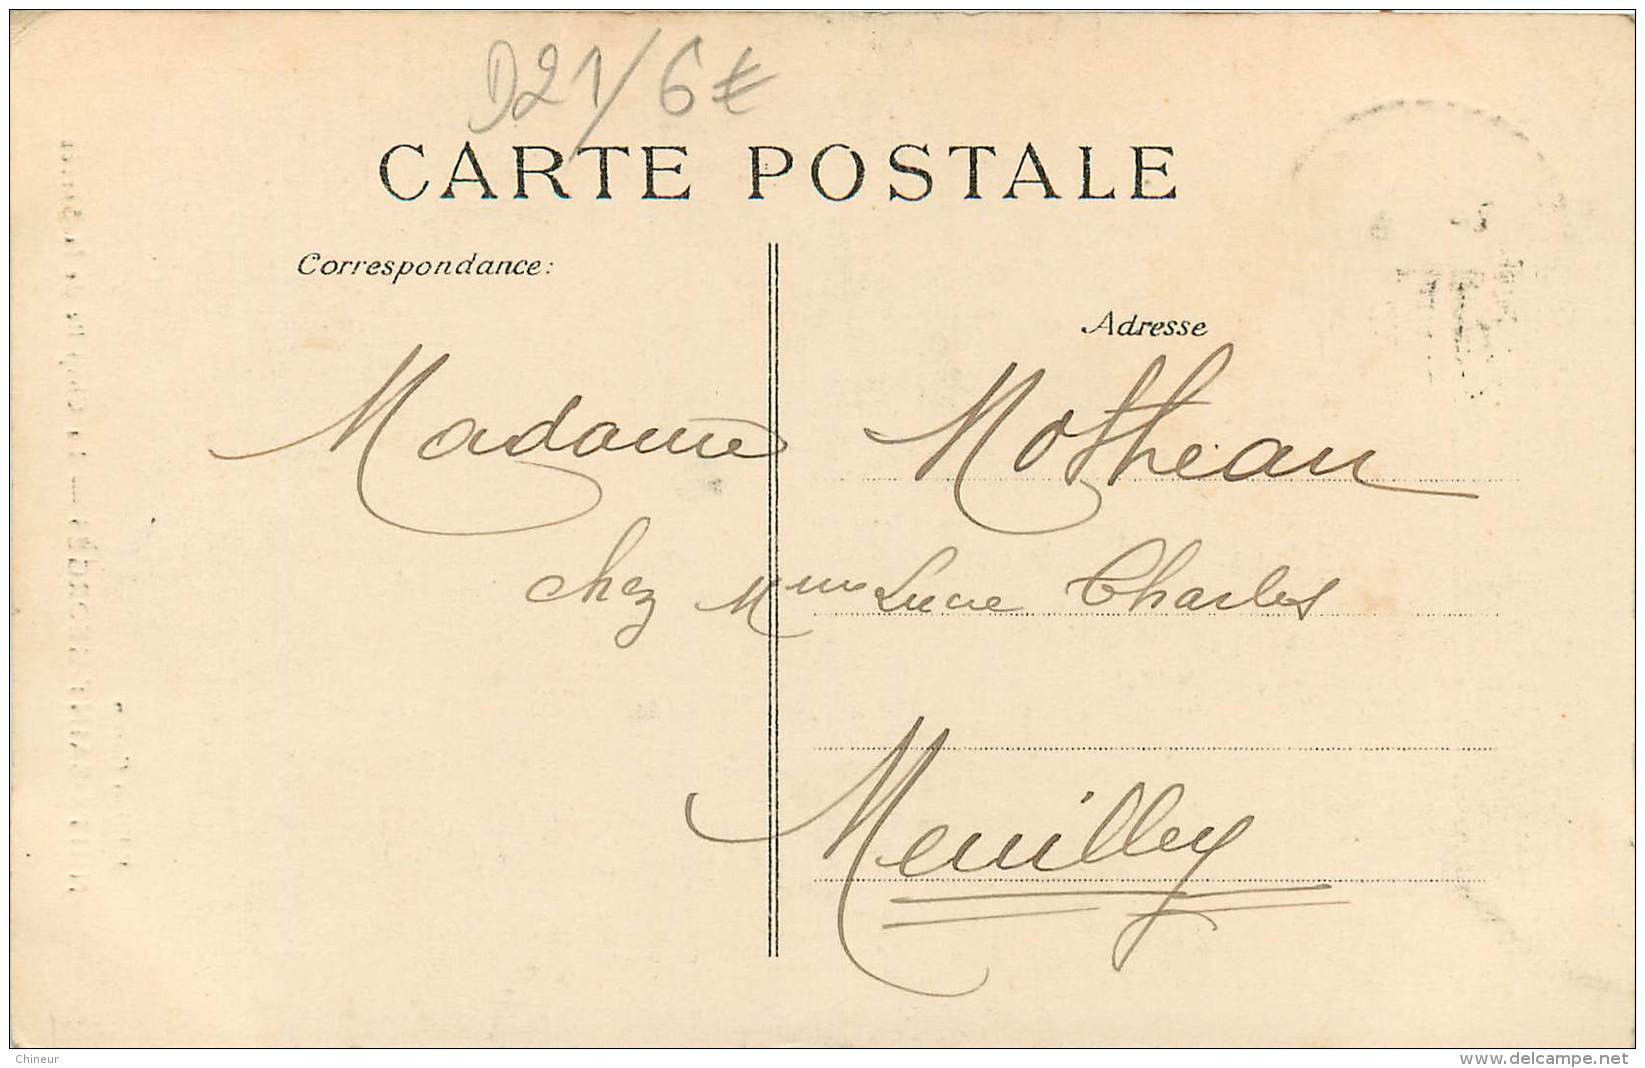 D21/6€
CARTE POSTALE
Correspondance:
Adresse
Madame Motheau
chez Mme Lucie Charles
Meuilley
Chineur
www.delcampe.net